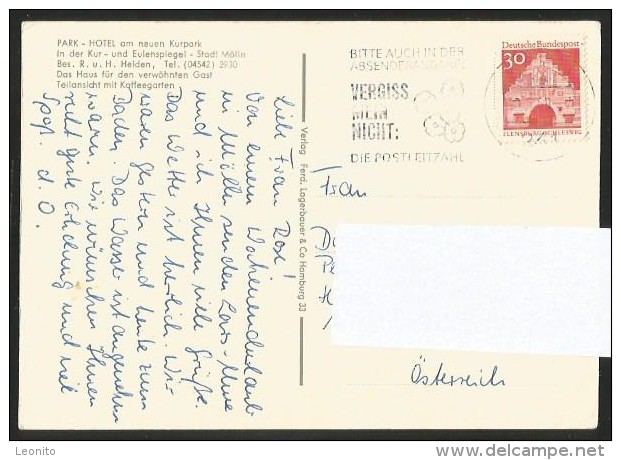 PARK - HOTEL am neuen Kurpark
in der Kur - und Eulenspiegel - Stadt Mölln
Bes. R. u. H. Heiden, Tel. (04542) 2930
Das Haus für den verwöhnten Gast
Teilansicht mit Kaffeegarten
Liebe Frau Rose!
Von einem Wochenendurlaub
in Mölln senden
und ich Ihnen viele Grüße.
Das Wetter ist herrlich. Wir
waren gestern und heute zum
Baden. Das Wasser ist angenehm
warm. Wir wünschen Ihnen
recht gute Erholung und viel
Spaß. d. O.
Verlag Ferd. Lagerbauer & Co Hamburg 33
BITTE AUCH IN DER
ABSENDERANGABE:
VERGISS
MEIN
NICHT:
DIE POSTLEITZAHL
Deutsche Bundespost
30
FLENSBURG/SCHLESWIG
Frau
Österreich
Leonito
delcampe.net